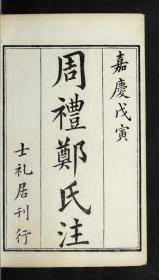 嘉慶戊寅
周禮鄭氏注
士礼居刊行